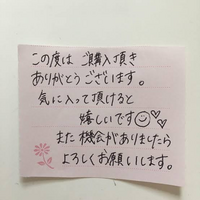 この度は ご購入頂き
ありがとうございます。
気に入って頂けると
嬉しいです
また機会がありましたら
よろしくお願いします。